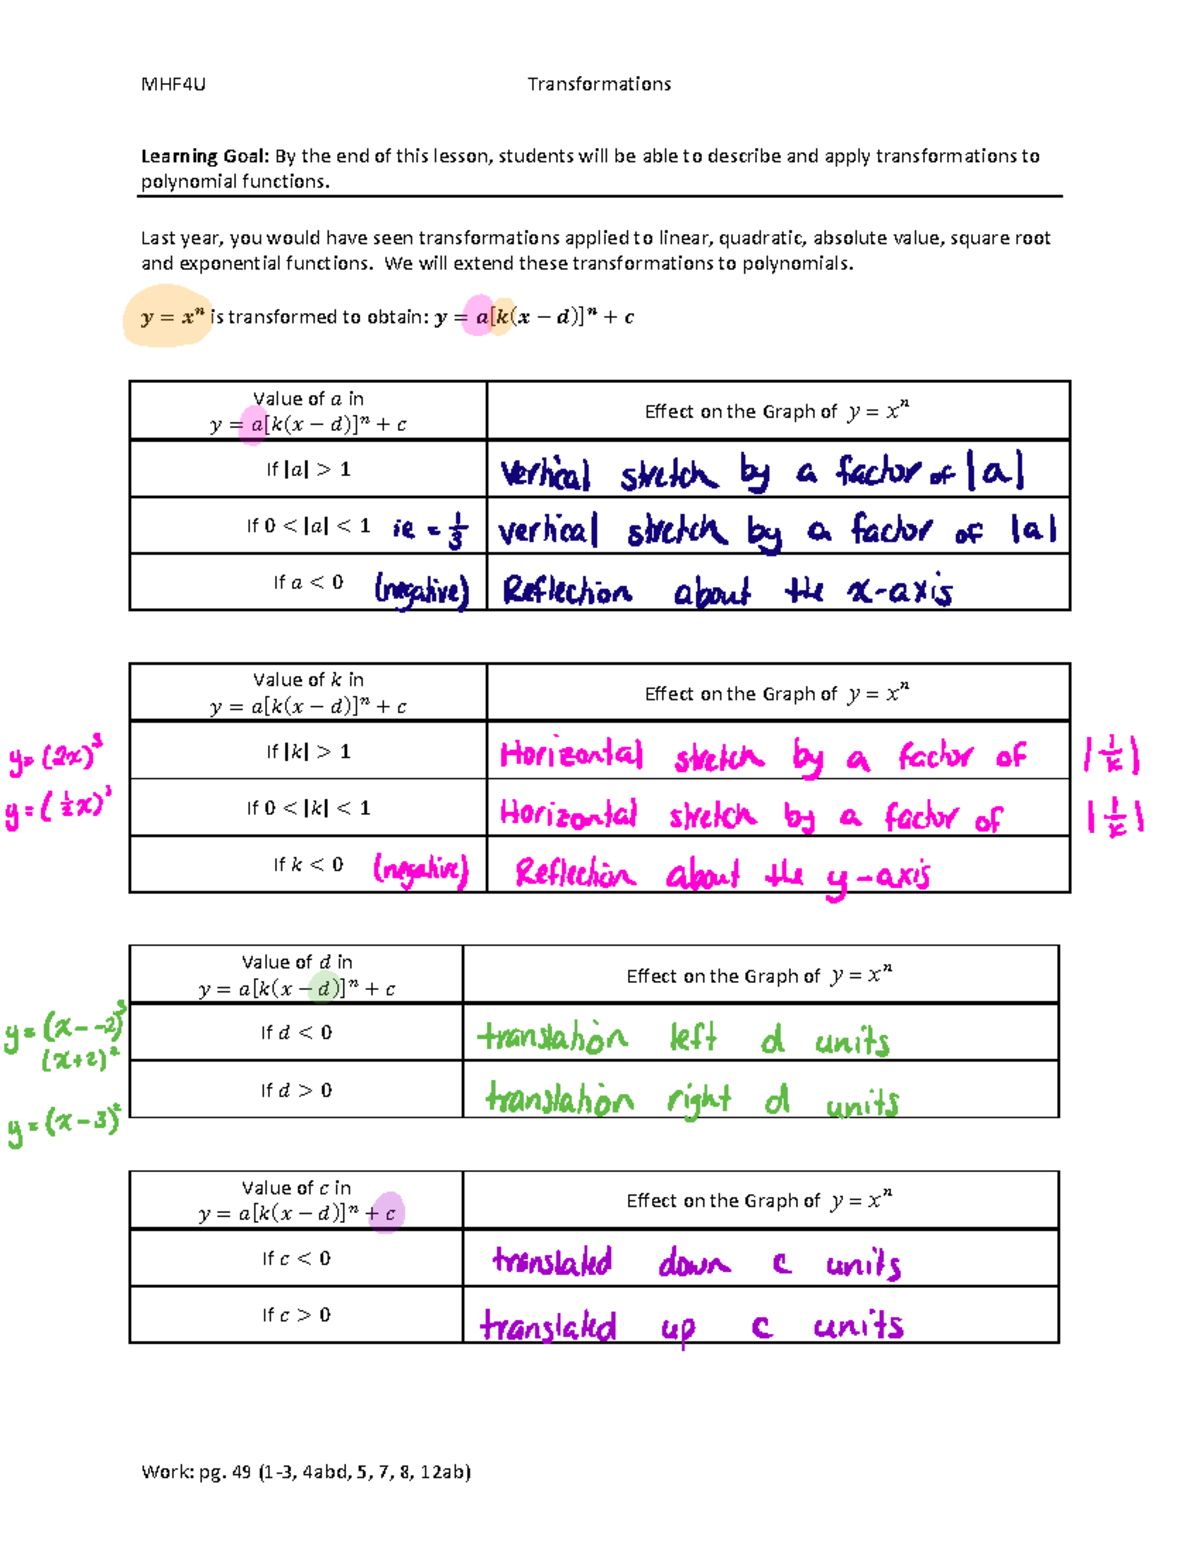 MHF4U Transformations
Learning Goal: By the end of this lesson, students will be able to describe and apply transformations to
polynomial functions.
Last year, you would have seen transformations applied to linear, quadratic, absolute value, square root
and exponential functions. We will extend these transformations to polynomials.
y = xⁿ is transformed to obtain: y = a[k(x − d)]ⁿ + c
Value of a in
y = a[k(x − d)]ⁿ + c
Effect on the Graph of y = xⁿ
If |a| > 1
Vertical stretch by a factor of |a|
If 0 < |a| < 1 ie = 1/3
vertical stretch by a factor of |a|
If a < 0 (negative)
Reflection about the x-axis
Value of k in
y = a[k(x − d)]ⁿ + c
Effect on the Graph of y = xⁿ
y = (2x)³
If |k| > 1
Horizontal stretch by a factor of |1/k|
y = (1/2x)³
If 0 < |k| < 1
Horizontal stretch by a factor of |1/k|
If k < 0 (negative)
Reflection about the y-axis
Value of d in
y = a[k(x − d)]ⁿ + c
Effect on the Graph of y = xⁿ
y = (x - -2)³
(x+2)²
If d < 0
translation left d units
If d > 0
translation right d units
y = (x - 3)²
Value of c in
y = a[k(x − d)]ⁿ + c
Effect on the Graph of y = xⁿ
If c < 0
translated down c units
If c > 0
translated up c units
Work: pg. 49 (1-3, 4abd, 5, 7, 8, 12ab)